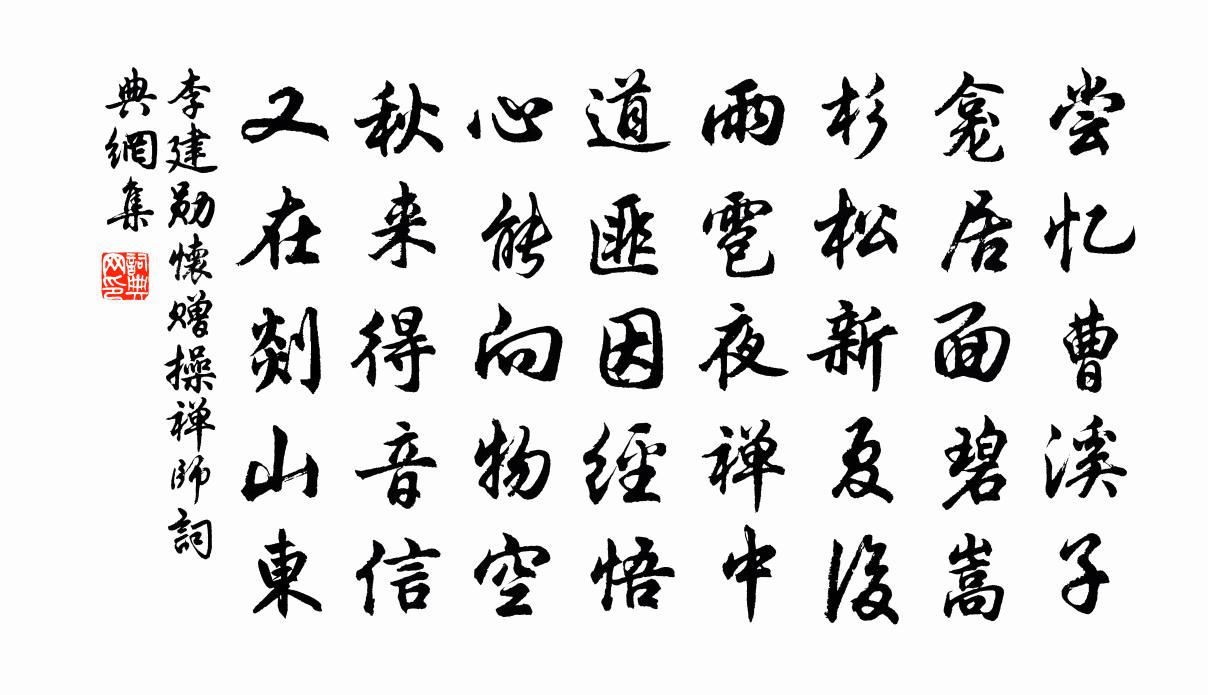 尝忆曹溪子
龛居面碧嵩
杉松新夏後
雨雹夜禅中
道匪因經悟
心能向物空
秋来得音信
又在剡山東
李建勋懷赠操禅師詞
典網集
詞典网印